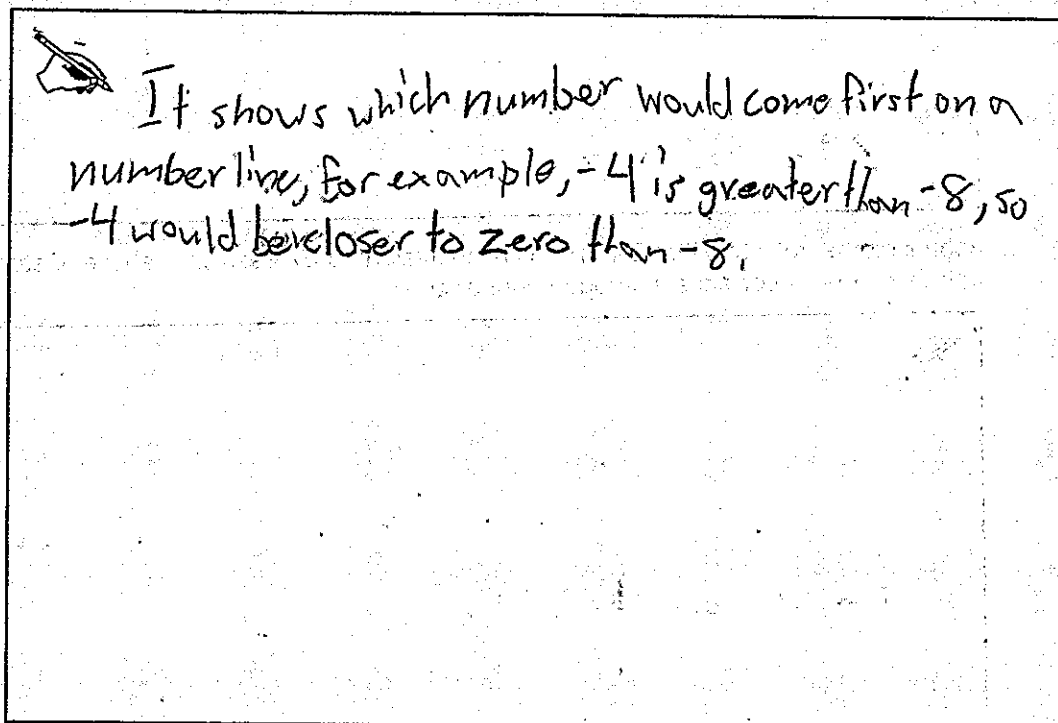 It shows which number would come first on a
number line, for example, -4 is greater than -8, so
-4 would be closer to zero than -8.